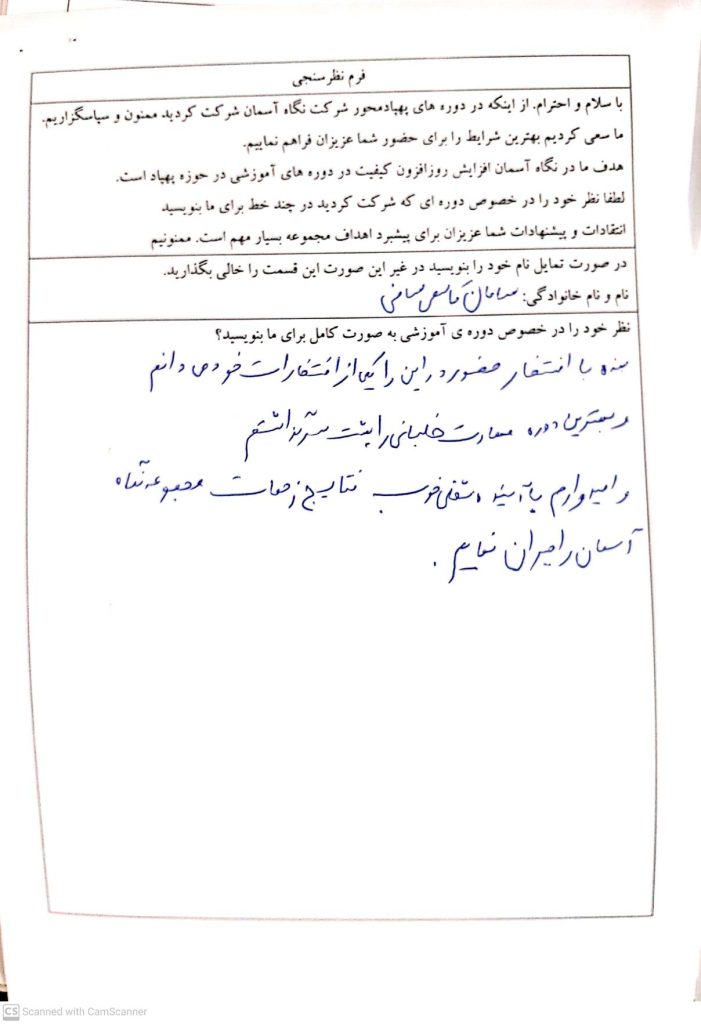 فرم نظرسنجی
با سلام و احترام. از اینکه در دوره های پهپادمحور شرکت نگاه آسمان شرکت کردید ممنون و سپاسگزاریم.
ما سعی کردیم بهترین شرایط را برای حضور شما عزیزان فراهم نماییم.
هدف ما در نگاه آسمان افزایش روزافزون کیفیت در دوره های آموزشی در حوزه پهپاد است.
لطفا نظر خود را در خصوص دوره ای که شرکت کردید در چند خط برای ما بنویسید
انتقادات و پیشنهادات شما عزیزان برای پیشبرد اهداف مجموعه بسیار مهم است. ممنونیم
در صورت تمایل نام خود را بنویسید در غیر این صورت این قسمت را خالی بگذارید.
نام و نام خانوادگی: سامان
نظر خود را در خصوص دوره ی آموزشی به صورت کامل برای ما بنویسید؟
بنده با افتخار حضور در این را یکی از افتخارات خود می دانم
و بهترین دوره مهارت خلبانی را پشت سر گذاشتم
و امیدوارم با آینده شغلی خوب نتایج زحمات مجموعه نگاه
آسمان را جبران نمایم.
CS Scanned with CamScanner